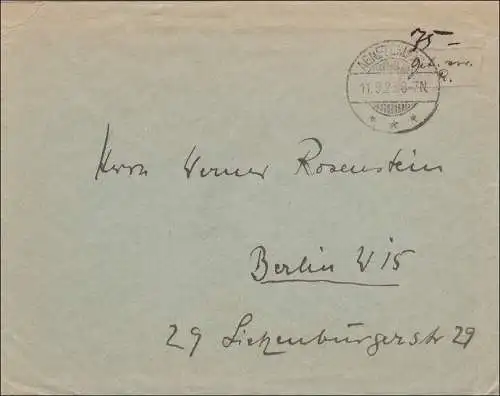 75-
11.9.23 6-7N
Herrn Werner Rosenstein
Berlin W 15
29 Lietzenburgerstr 29